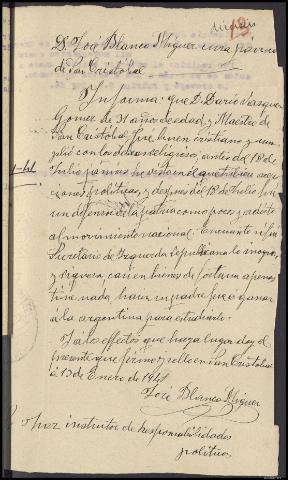 13.
D. José Blanco Miguez cura parroco
de San Cristobal
Informa: que D. Dario Vazquez
Gomez de 31 años de edad, y Maestro de
San Cristobal fue buen cristiano y cum-
plió con los deberes religiosos, antes del 18 de
Julio jamas he visto el que tuviera
politicas, y despues del 18 de Julio fue
un defensor de la patria como pocos y adicto
al movimiento nacional. En cuanto si fue
Secretario de Izquierda republicana lo ignoro,
y riqueza casi en bienes de fortuna apenas
tiene nada, hasta su padre fue a ganar
á la argentina para estudiarlo.
Y a los efectos que haya lugar doy el
presente que firmo y sello en San Cristobal
á 13 de Enero de 1941
José Blanco Miguez
instructor de responsabilidades
politicas.